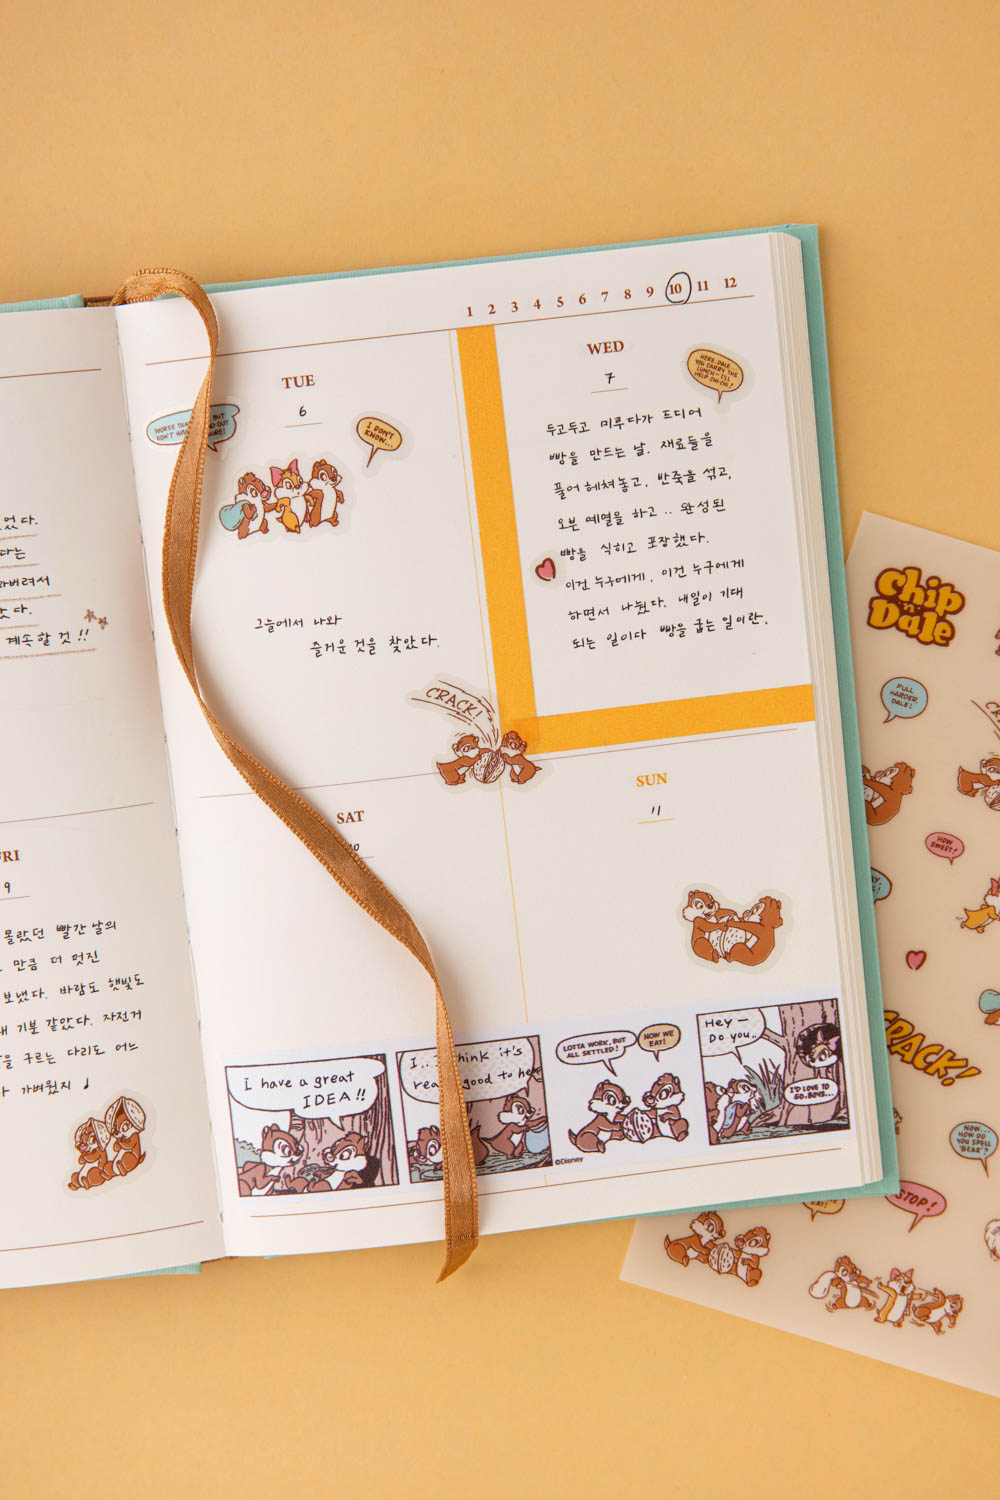 1 2 3 4 5 6 7 8 9 10 11 12
었다.
다는
와버려서
았다.
계속할 것!!
TUE
6
I DON'T
KNOW...
그늘에서 나와
즐거운 것을 찾았다.
WED
7
HERE, DALE...
YOU CARRY THE
LUNCH—I'LL
HELP CHI-CHI!
두고두고 미루다가 드디어
빵을 만드는 날. 재료들을
풀어헤쳐놓고, 반죽을 섞고,
오븐 예열을 하고.. 완성된
빵을 식히고 포장했다.
이건 누구에게, 이건 누구에게
하면서 나눴다. 내일이 기대
되는 일이다 빵을 굽는 일이란.
CRACK!
9
몰랐던 빨간날의
만큼 더 멋진
보냈다. 바람도 햇빛도
기분 같았다. 자전거
구르는 다리도 어느
가벼웠지 ♩
SAT
SUN
11
I have a great
IDEA!!
I.. think it's
good to
LOTTA WORK, BUT
ALL SETTLED!
NOW WE
EAT!
©Disney
Hey—
Do you..
I'D LOVE TO
GO, BOYS...
Chip
'n'
Dale
PULL
HARDER,
DALE!
HOW
SWEET!
CRACK!
NOW...
HOW DO
YOU SPELL
'BEAR'?
STOP!
EAT!